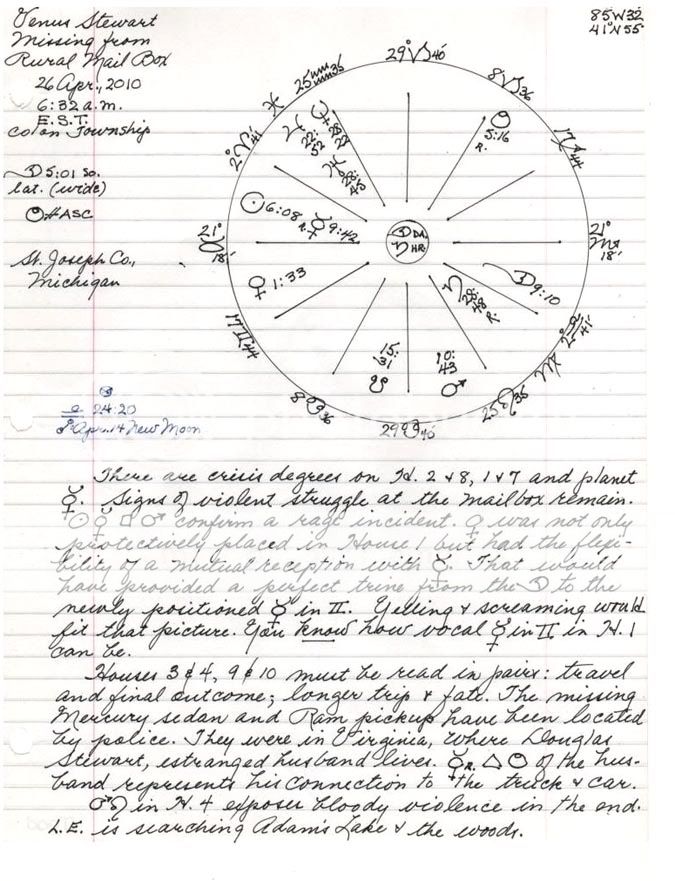 Venus Stewart
Missing from
Rural Mail Box
26 Apr., 2010
6:32 a.m.
E.S.T.
Colon Township
☽ 5:01 So.
lat. (wide)
# ASC
St. Joseph Co.,
Michigan
24:20
☍ Apr. 14 New Moon
85W32
41°N55'
29°♑40'
8♑36
17♐44
21°
♏
18'
2°♏41'
25♌36
29♋40
8♋36
17♊44
21°
♉
18'
2°♈41
♓
25♒36
5:16
R.
☽ DA.
♄ HR.
☉ 6:08
R. ☿ 9:42
♀ 1:33
15:
31
☋
10:
43
♂
♄ 28:48
R.
☽ 9:10
There are crisis degrees on H. 2 & 8, 1 & 7 and planet
☿. Signs of violent struggle at the mailbox remain.
☉ ☿ □ ♂ confirm a rage incident. ♀ was not only
protectively placed in House 1 but had the flexi-
bility of a mutual reception with ☿. That would
have provided a perfect trine from the ☽ to the
newly positioned ☿ in ♊. Yelling & screaming would
fit that picture. You know how vocal ☿ in ♊ in H. 1
can be.
Houses 3 & 4, 9 & 10 must be read in pairs: travel
and final outcome; longer trip & fate. The missing
Mercury sedan and Ram pickup have been located
by police. They were in Virginia, where Douglas
Stewart, estranged husband lives. ☿ R. △ of the hus-
band represents his connection to the truck & car.
♂ ♌ in H. 4 exposes bloody violence in the end.
L.E. is searching Adam's Lake & the woods.